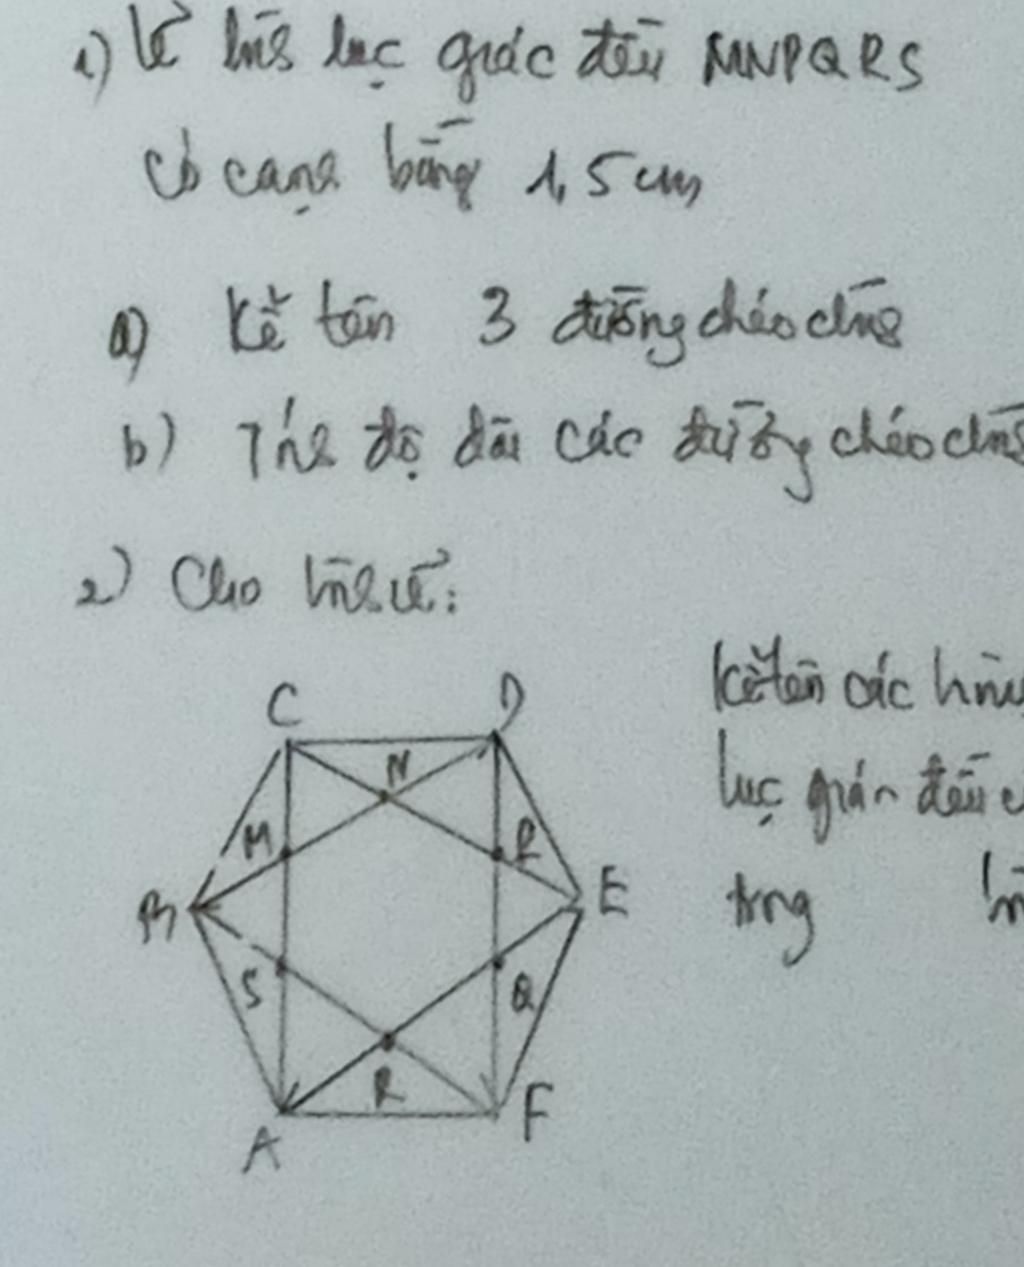 1) Vẽ hình lục giác đều MNPQRS
có cạnh bằng 1,5 cm
a) Kể tên 3 đường chéo chính
b) Tính độ dài các đường chéo chính
2) Cho hình vẽ:
Kể tên các hình
lục giác đều
trong
C D
N
M P
B E
S Q
R
A F